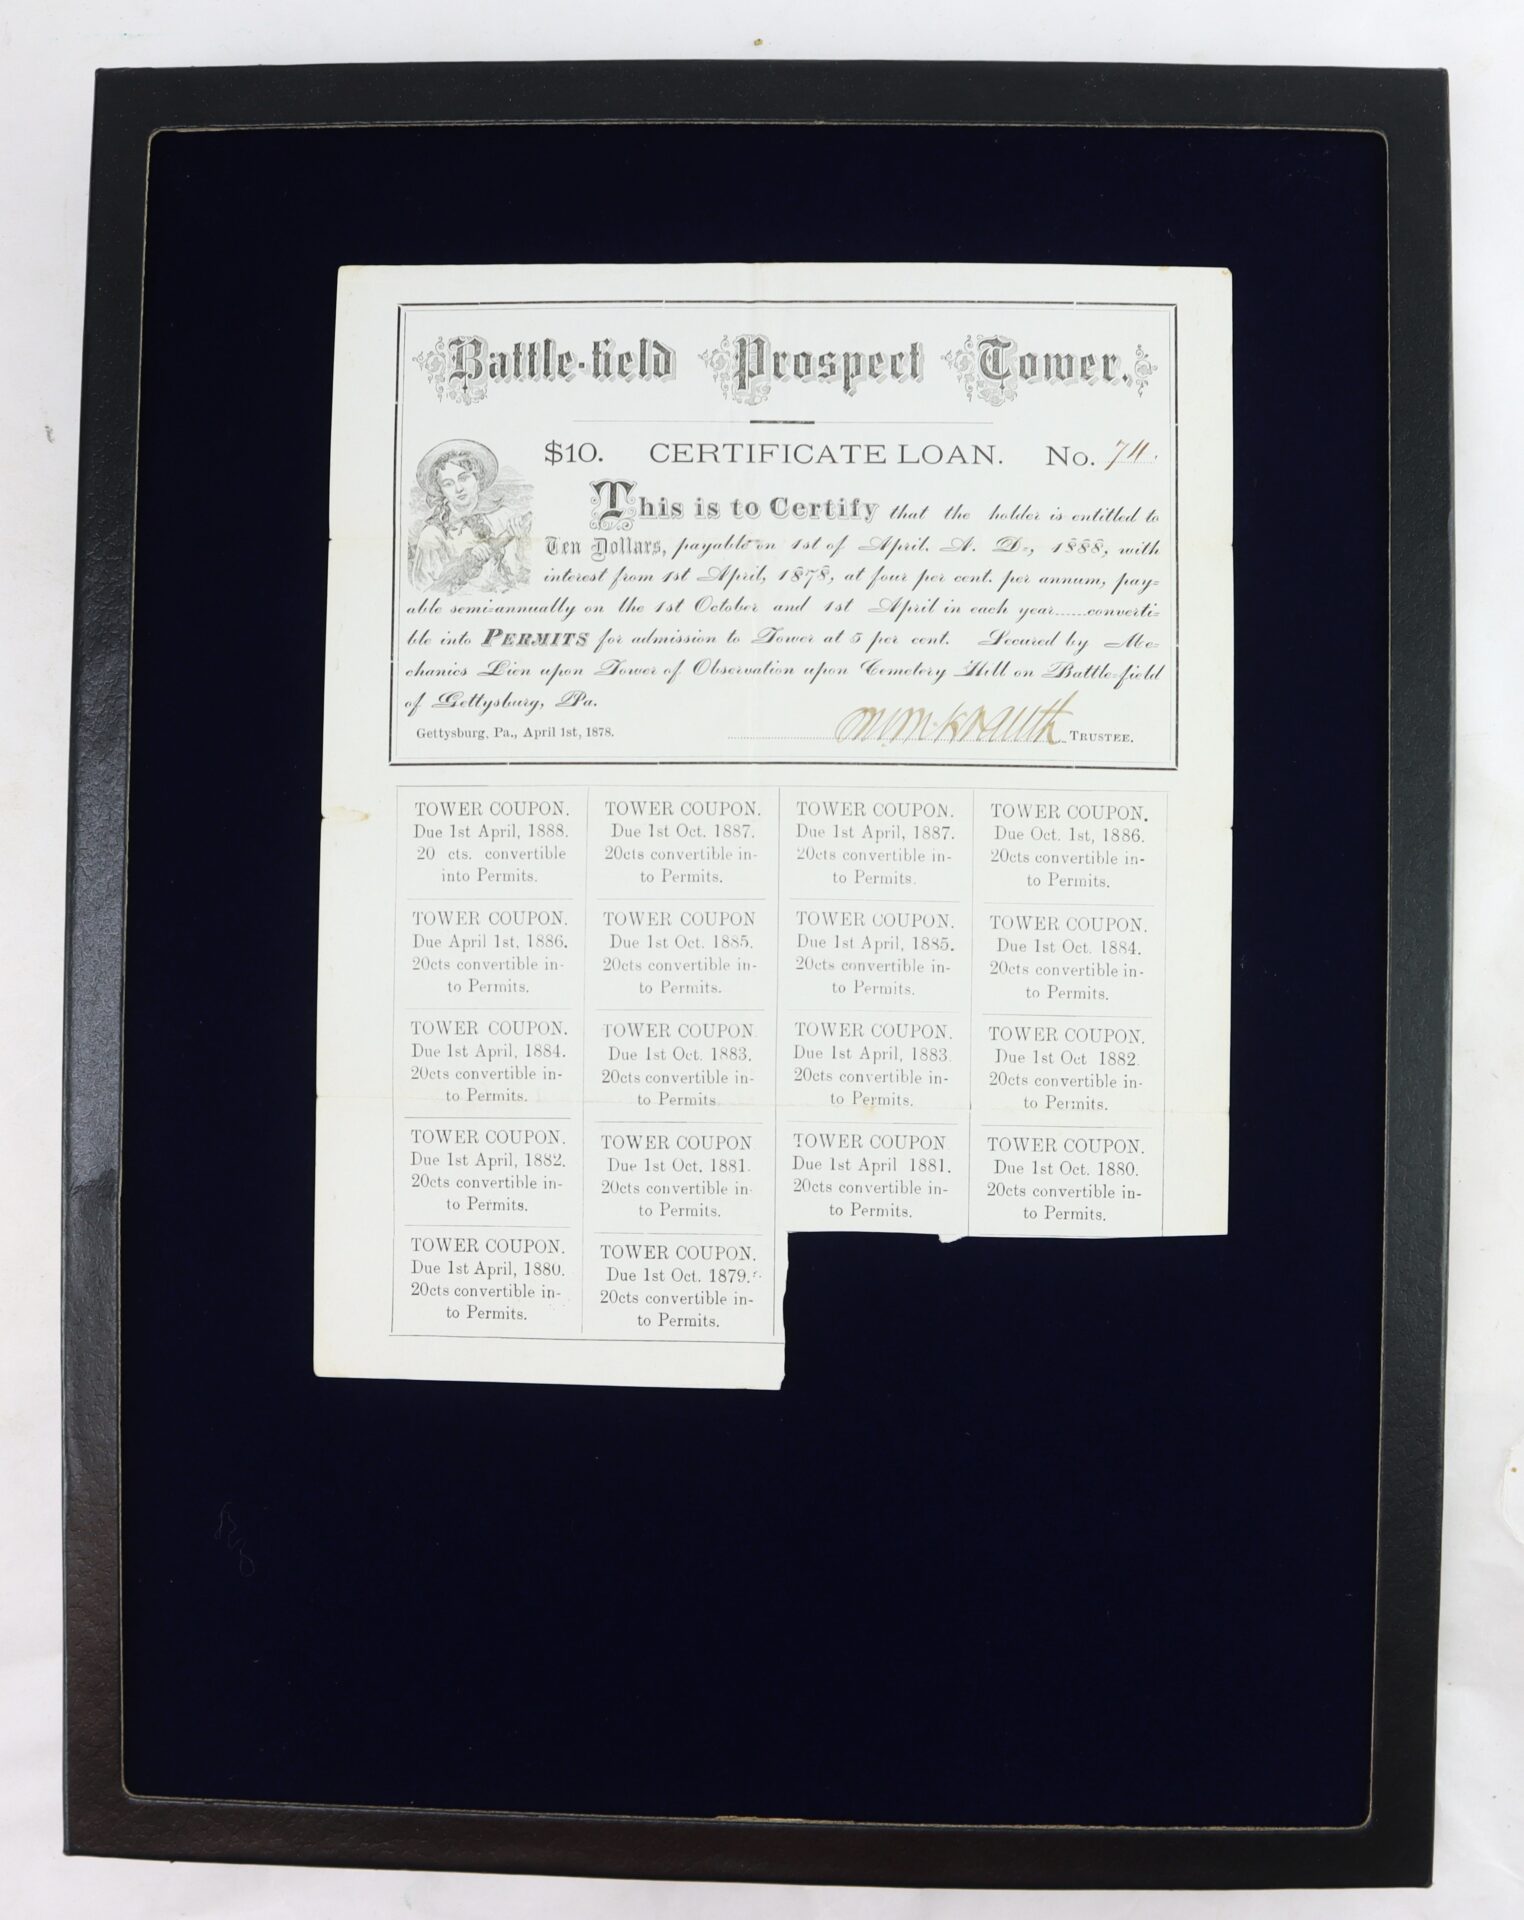 Battle-field Prospect Tower.
$10. CERTIFICATE LOAN. No. 74.
This is to Certify that the holder is entitled to
Ten Dollars, payable on 1st of April, A. D., 1888, with
interest from 1st April, 1878, at four per cent. per annum, pay=
able semi=annually on the 1st October and 1st April in each year......converti=
ble into PERMITS for admission to Tower at 5 per cent. Secured by Me=
chanics Lien upon Tower of Observation upon Cemetery Hill on Battle=field
of Gettysburg, Pa.
Gettysburg, Pa., April 1st, 1878. TRUSTEE.
TOWER COUPON. TOWER COUPON. TOWER COUPON. TOWER COUPON.
Due 1st April, 1888. Due 1st Oct. 1887. Due 1st April, 1887. Due Oct. 1st, 1886.
20 cts. convertible 20cts convertible in- 20cts convertible in- 20cts convertible in-
into Permits. to Permits. to Permits. to Permits.
TOWER COUPON. TOWER COUPON TOWER COUPON. TOWER COUPON.
Due April 1st, 1886. Due 1st Oct. 1885. Due 1st April, 1885. Due 1st Oct. 1884.
20cts convertible in- 20cts convertible in- 20cts convertible in- 20cts convertible in-
to Permits. to Permits. to Permits. to Permits.
TOWER COUPON. TOWER COUPON. TOWER COUPON. TOWER COUPON.
Due 1st April, 1884. Due 1st Oct. 1883. Due 1st April, 1883. Due 1st Oct 1882.
20cts convertible in- 20cts convertible in- 20cts convertible in- 20cts convertible in-
to Permits. to Permits. to Permits. to Permits.
TOWER COUPON. TOWER COUPON TOWER COUPON TOWER COUPON.
Due 1st April, 1882. Due 1st Oct. 1881. Due 1st April 1881. Due 1st Oct. 1880.
20cts convertible in- 20cts convertible in- 20cts convertible in- 20cts convertible in-
to Permits. to Permits. to Permits. to Permits.
TOWER COUPON. TOWER COUPON.
Due 1st April, 1880. Due 1st Oct. 1879.
20cts convertible in- 20cts convertible in-
to Permits. to Permits.